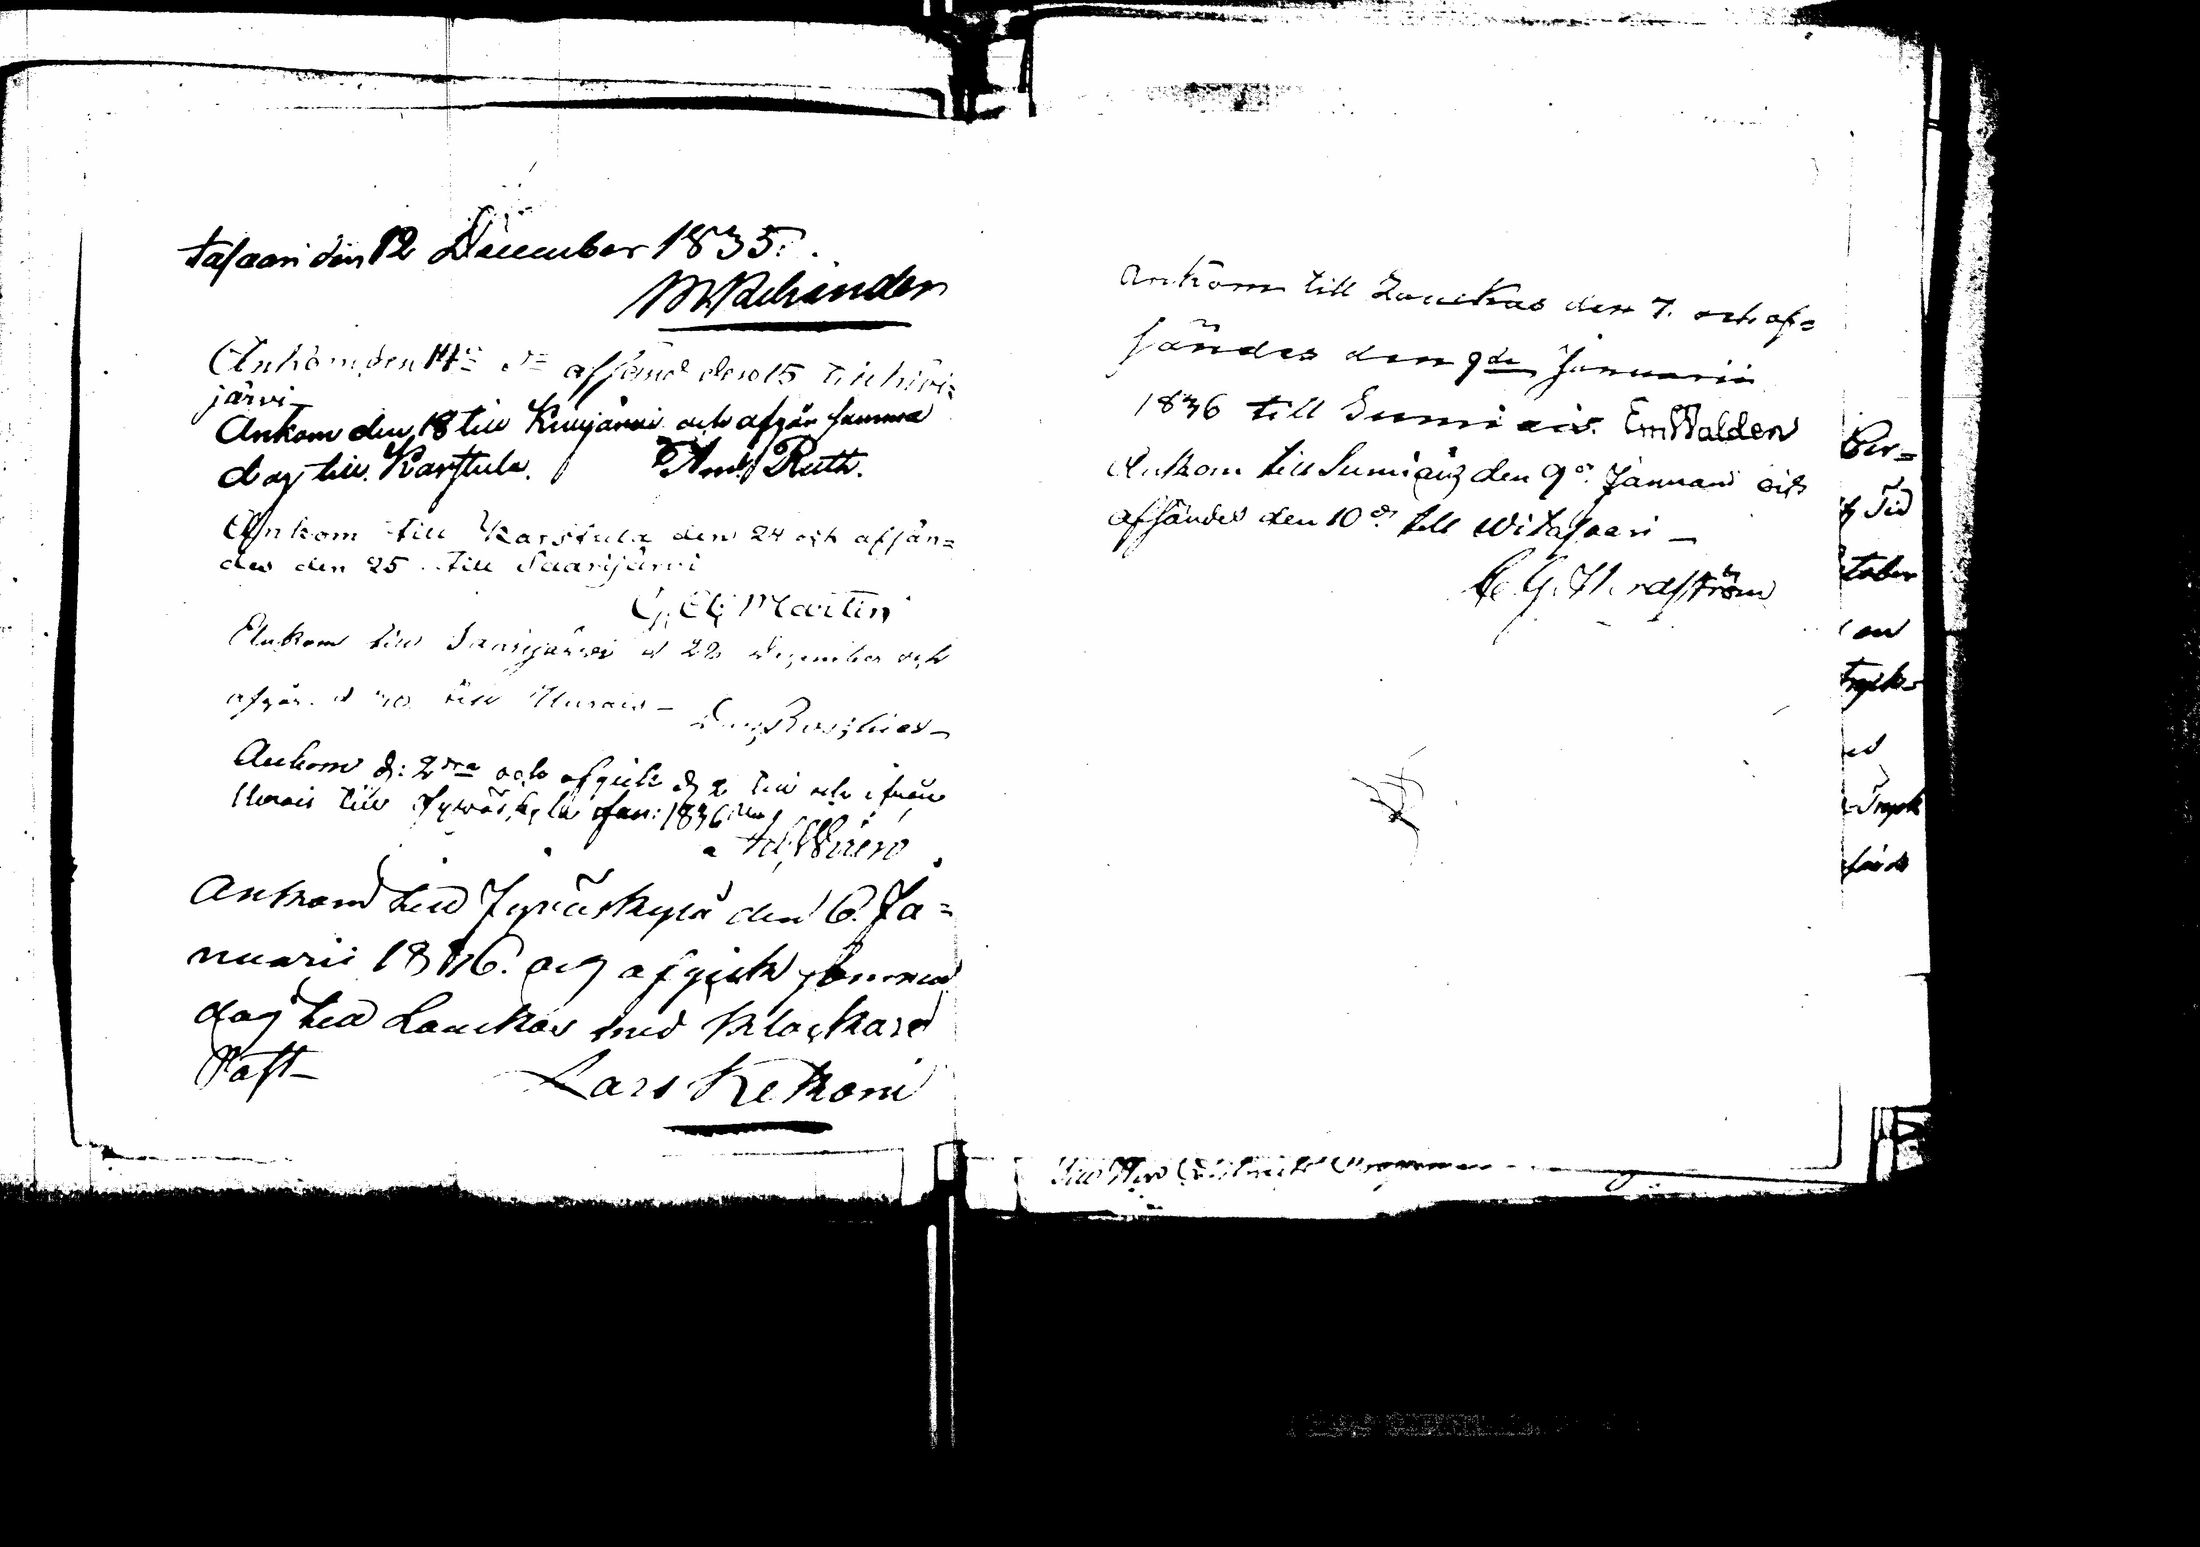 tasaari den 12 December 1835.
Ankom den 14de afsänd den 15 till Kivi=
järvi
Ankom den 18 till Kivijärvi och afgår samma
dag till Karstula. Ruth.
Ankom till Karstula den 24 och afsän=
des den 25 till Saarijärvi
G. El. Martin
Ankom till Saarijärvi d 28 December och
afgår d 30 till Urais – Roschier
Ankom d: 2dra och afgick d 2 till och ifrån
Urais till Jywäskylä Jan: 1836
Ad. Wiren
Ankom till Jyväskylä den 6. Ja=
nuarii 1836. och afgick samma
dag till Laukas med Klockare
Påst –
Lars Kekoni
Ankom till Laukas den 7. och af=
sändes den 9de Januarii
1836 till Sumiais. Em Walden
Ankom till Sumiais den 9de Januari och
afsändes den 10de till Witasaari –
C. G. Nordström
Per=
Tid
tober
Tryck